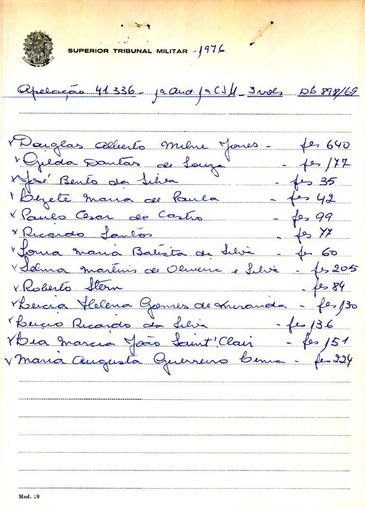 SUPERIOR TRIBUNAL MILITAR - 1976
Apelação 41.336 - 1ª Aud 1ª CJM - 3 vols
Douglas Alberto Milne Jones - fls 640
Gilda Dantas de Souza - fls 177
José Bento da Silva - fls 35
Maria de Paula - fls 42
Paulo Cesar de Castro - fls 99
Ricardo Santos - fls 77
Sonia Maria Batista da Silva - fls 60
Selma Martins de Oliveira e Silva - fls 205
Roberto Stern - fls 84
Helena Gomes de Miranda - fls 130
Ricardo da Silva - fls 136
Marcia João Saint'Clair - fls 151
Maria Augusta Guerreiro - fls 224
Mod. 19